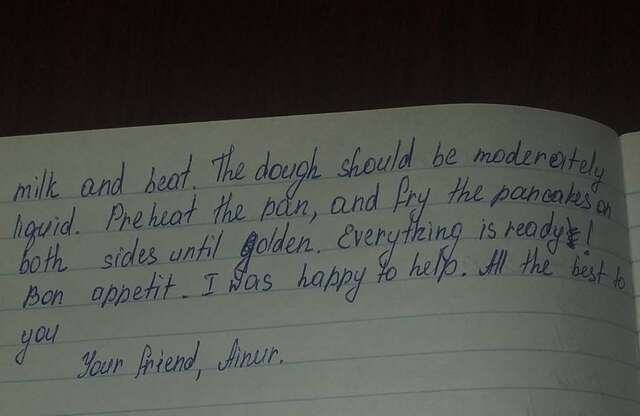 milk and beat. The dough should be moderately
liquid. Preheat the pan, and fry the pancakes on
both sides until golden. Everything is ready!
Bon appetit. I was happy to help. All the best to
you
Your friend, Ainur.